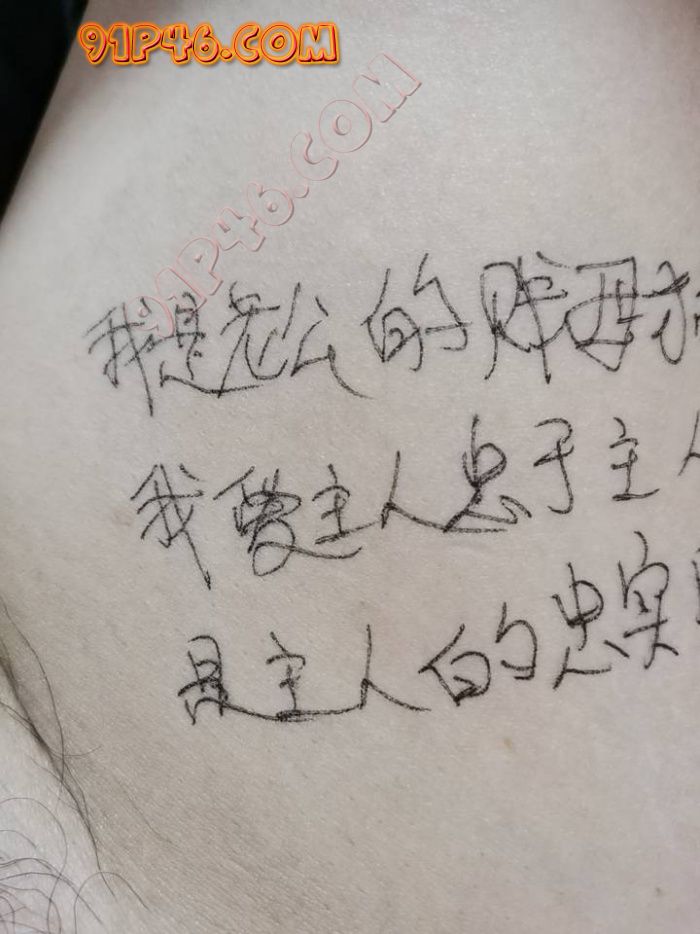 91P46.COM
91P46.COM
我是老公的贱母狗
我爱主人忠于主人
是主人的忠实